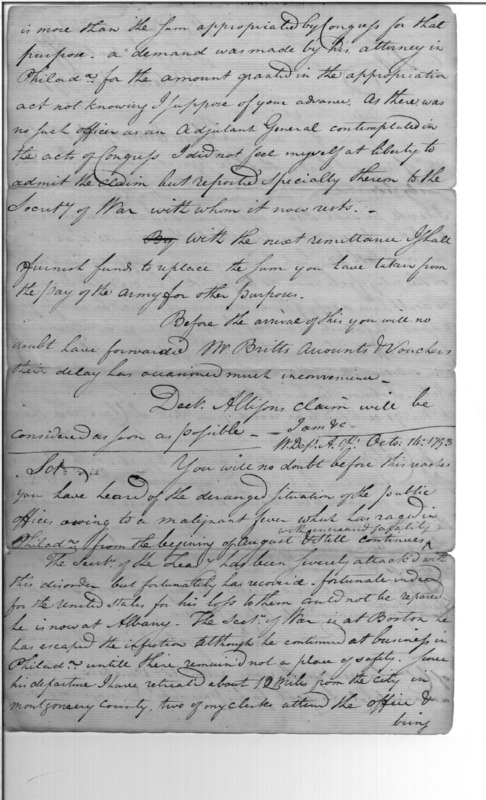 is more than the sum appropriated by Congress for that
purpose. a demand was made by his attorney in
Philada. for the amount granted in the appropriation
act not knowing I suppose of your advance. As there was
no such officer as an Adjutant General contemplated in
the acts of Congress I did not feel myself at liberty to
admit the claim but reported specially thereon to the
Secrety of War with whom it now rests. -
By With the next remittance I shall
furnish funds to replace the sum you have taken from
the pay of the army for other purposes.
Before the arrival of this you will no
doubt have forwarded Mr Britts Accounts & Vouchers
their delay has occasioned much inconvenience -
Doct. Allisons claim will be
considered as soon as possible -
I am &c
W. Dept. A. Of. Octo. 14: 1793
You will no doubt before this reaches
you have heard of the deranged situation of the public
offices owing to a malignant fever which has raged in
Philada. from the begining of August & still continues with increased fatality
The Secrety of the Treasy has been severely attacked with
this disorder but fortunately has recoverd. fortunate indeed
for the United States for his loss to them could not be repaired
he is now at Albany. The Secty of War is at Boston he
has escaped the infection although he continued at business in
Philada. untill there remained not a place of safety. Since
his departure I have retreated about 12 Miles from the city in
montgomery County. two of my clerks attend the office &
bring